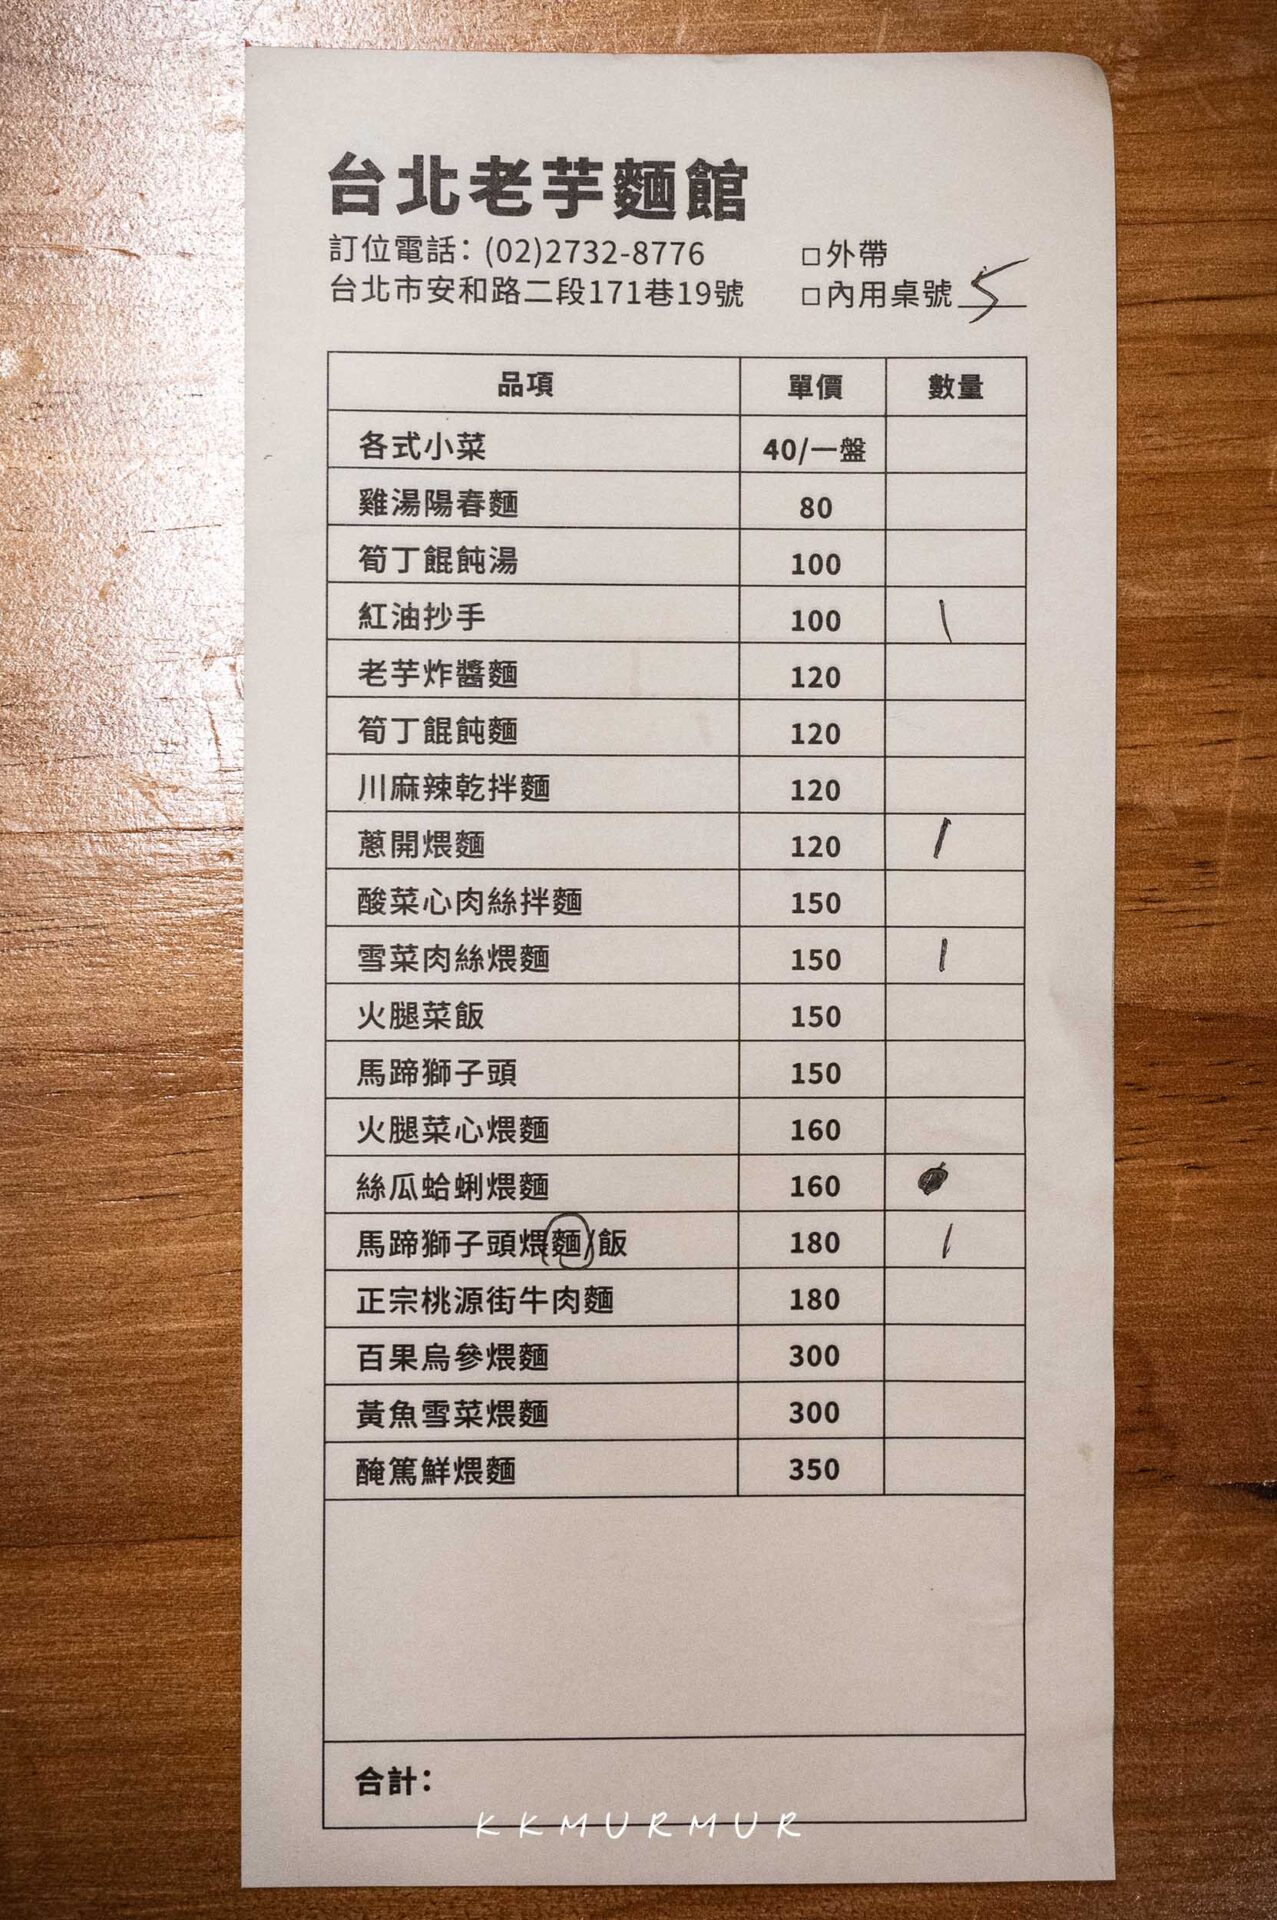 台北老芋麵館
訂位電話：(02)2732-8776 □外帶
台北市安和路二段171巷19號 □內用桌號 5
品項 單價 數量
各式小菜 40/一盤
雞湯陽春麵 80
筍丁餛飩湯 100
紅油抄手 100 1
老芋炸醬麵 120
筍丁餛飩麵 120
川麻辣乾拌麵 120
蔥開煨麵 120 1
酸菜心肉絲拌麵 150
雪菜肉絲煨麵 150 1
火腿菜飯 150
馬蹄獅子頭 150
火腿菜心煨麵 160
絲瓜蛤蜊煨麵 160
馬蹄獅子頭煨麵/飯 180 1
正宗桃源街牛肉麵 180
百果烏參煨麵 300
黃魚雪菜煨麵 300
醃篤鮮煨麵 350
合計：
KKMURMUR